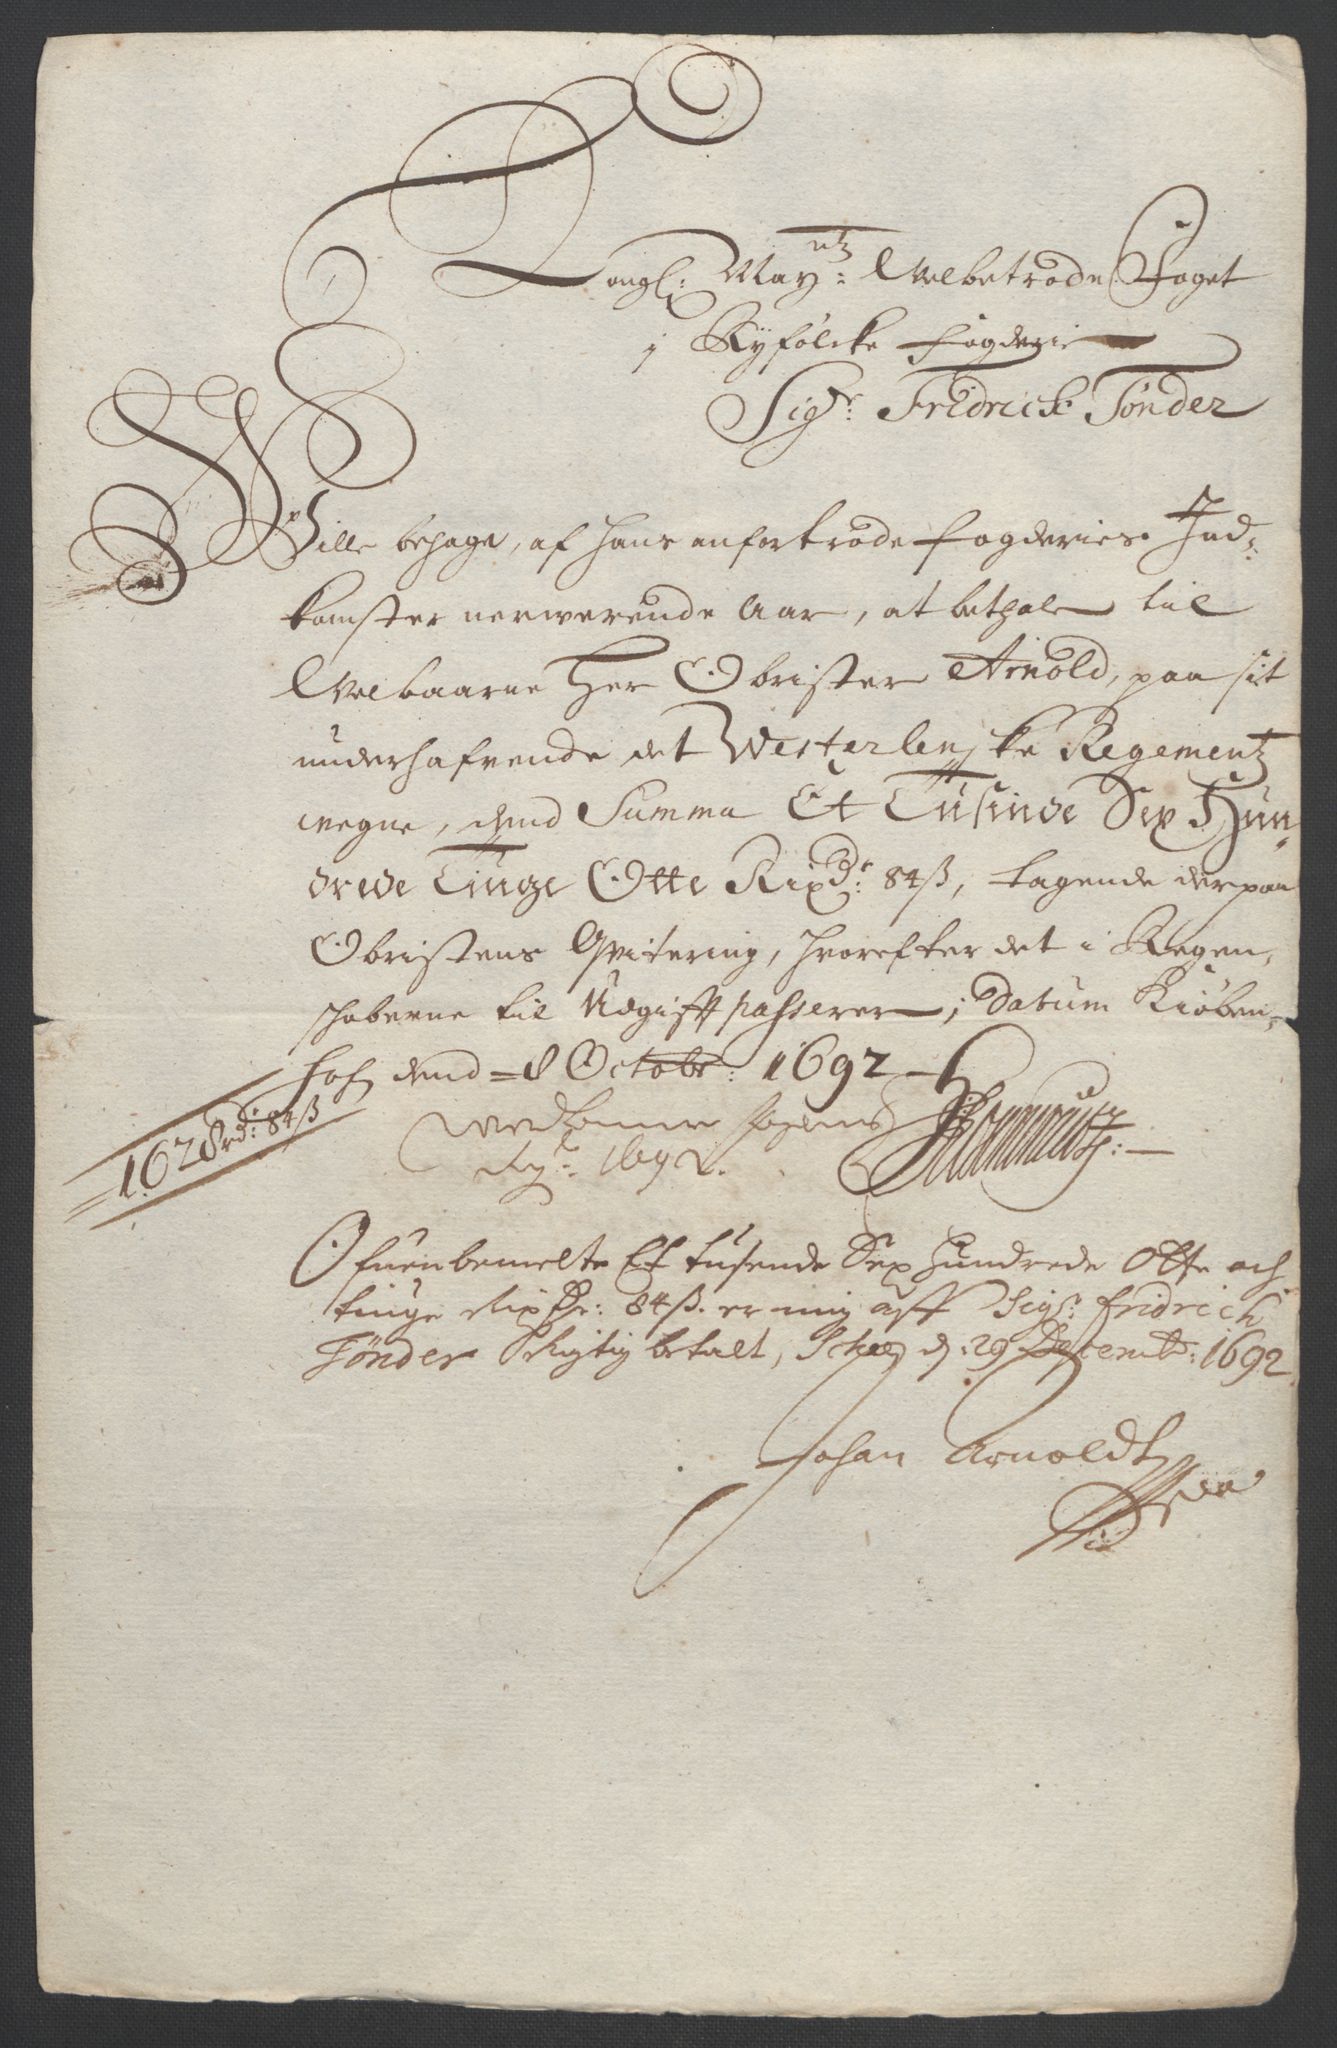 Kongl: May:ᵗᶻ Velbetrode Foget
j Ryfølcke fogderie
Sigr: Fridrich Tønder
Ville behage, af hans anfortrode fogderies Ind-
komster nerverende Aar, at bethale til
Velbaarne Her Obrister Arnold, paa sit
underhafvende det Westerlenske Regementz
vegne, dend Summa Et Tusinde Sex Hun-
drede Tiuge Otte Rixdr: 84 ß, tagende derpaa
Obristens Qvitering, hvorefter det i Regen-
schaberne til Udgifft passerer, Datum Kiøben-
hafn dend 8 Octobr: 1692
1628 rdr: 84 ß
1692.
Ofuenbemelte Et tusende Sex hundrede Otte och
tiuge Rixdr: 84 ß. er mig aff Sigr: fridrich
Tønder Rigtig betalt, d: 29 Decembr: 1692
Johan Arnoldt